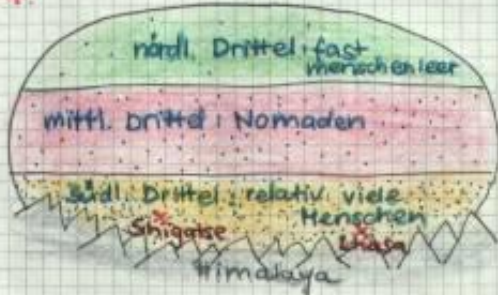 nördl. Drittel: fast
menschenleer
mittl. Drittel: Nomaden
südl. Drittel: relativ viele
Menschen
Shigatse
Lhasa
Himalaya